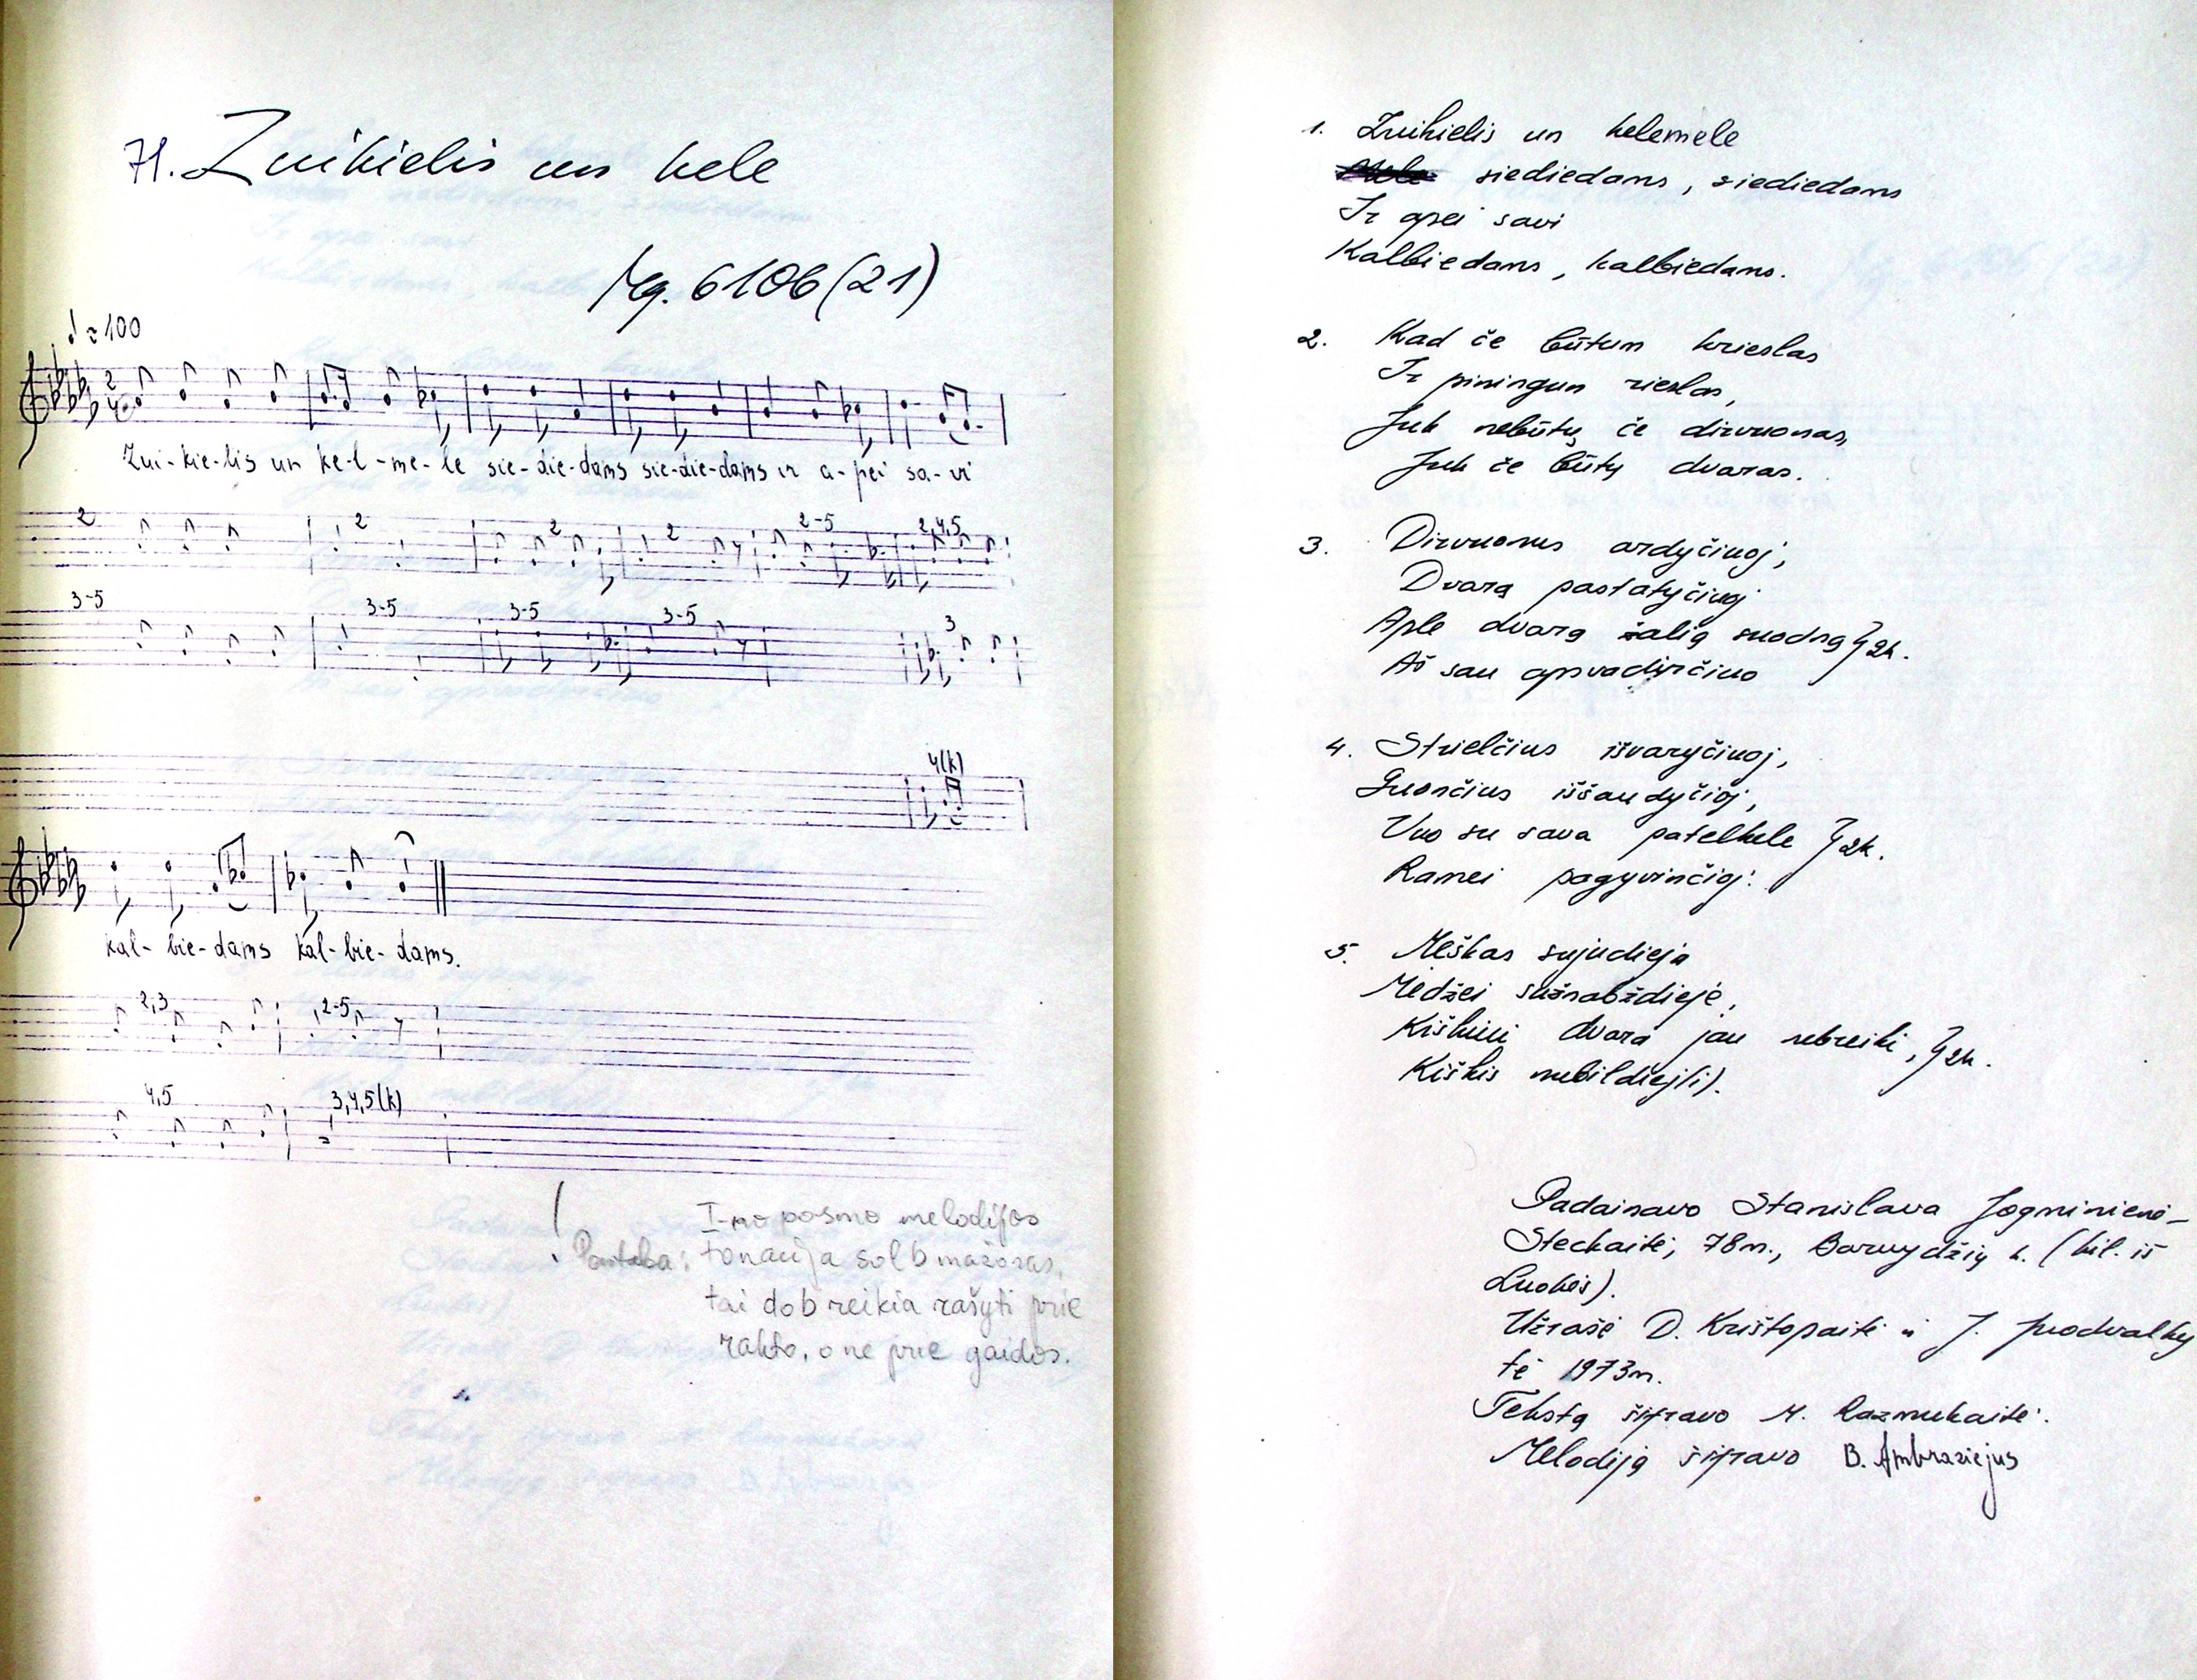 71. Zuikielis un kele
Mg. 6106 (21)
♩ ≈ 100
2
4
Zui-kie-lis un ke-l-me-le sie-die-dams sie-die-dams ir a-pei sa-vi
2 2 2 2 2-5 2,4,5
3-5 3-5 3-5 3-5 3
4(k)
kal-bie-dams kal-bie-dams.
2,3 2-5
4,5 3,4,5(k)
! I-mo posmo melodijos
Pastaba: tonacija sol b mažoras,
tai do b reikia rašyti prie
rakto, o ne prie gaidos.
1. Zuikielis un kelemele
siediedams, siediedams
Ir apei savi
Kalbiedams, kalbiedams.
2. Kad če būtum krieslas
Ir piningun rieslas,
Juk nebūtų če dirvuonas,
Juk če būtų dvaras.
3. Dirvuonus ardyčiuoj,
Dvarą pastatyčiuoj
Aple dvarą žalią suodną } 2k.
Aš sau apvadinčiuo
4. Strielčius išvaryčiuoj,
Guončius iššaudyčioj,
Vuo su sava patelkele } 2k.
Ramei pagyvinčioj.
5. Meškas sujudieja
Medžei sušnabždieje,
Kiškiui dvara jau nebreiki, } 2k.
Kiškis nebildiej(i).
Padainavo Stanislava Jogminienė-
Steckaitė, 78m., Barvydžių k. (kil. iš
Luokės).
Užrašė D. Krištopaitė ir J. Juodvalky
tė 1973m.
Tekstą šifravo M. Razmukaitė.
Melodiją šifravo B. Ambraziejus